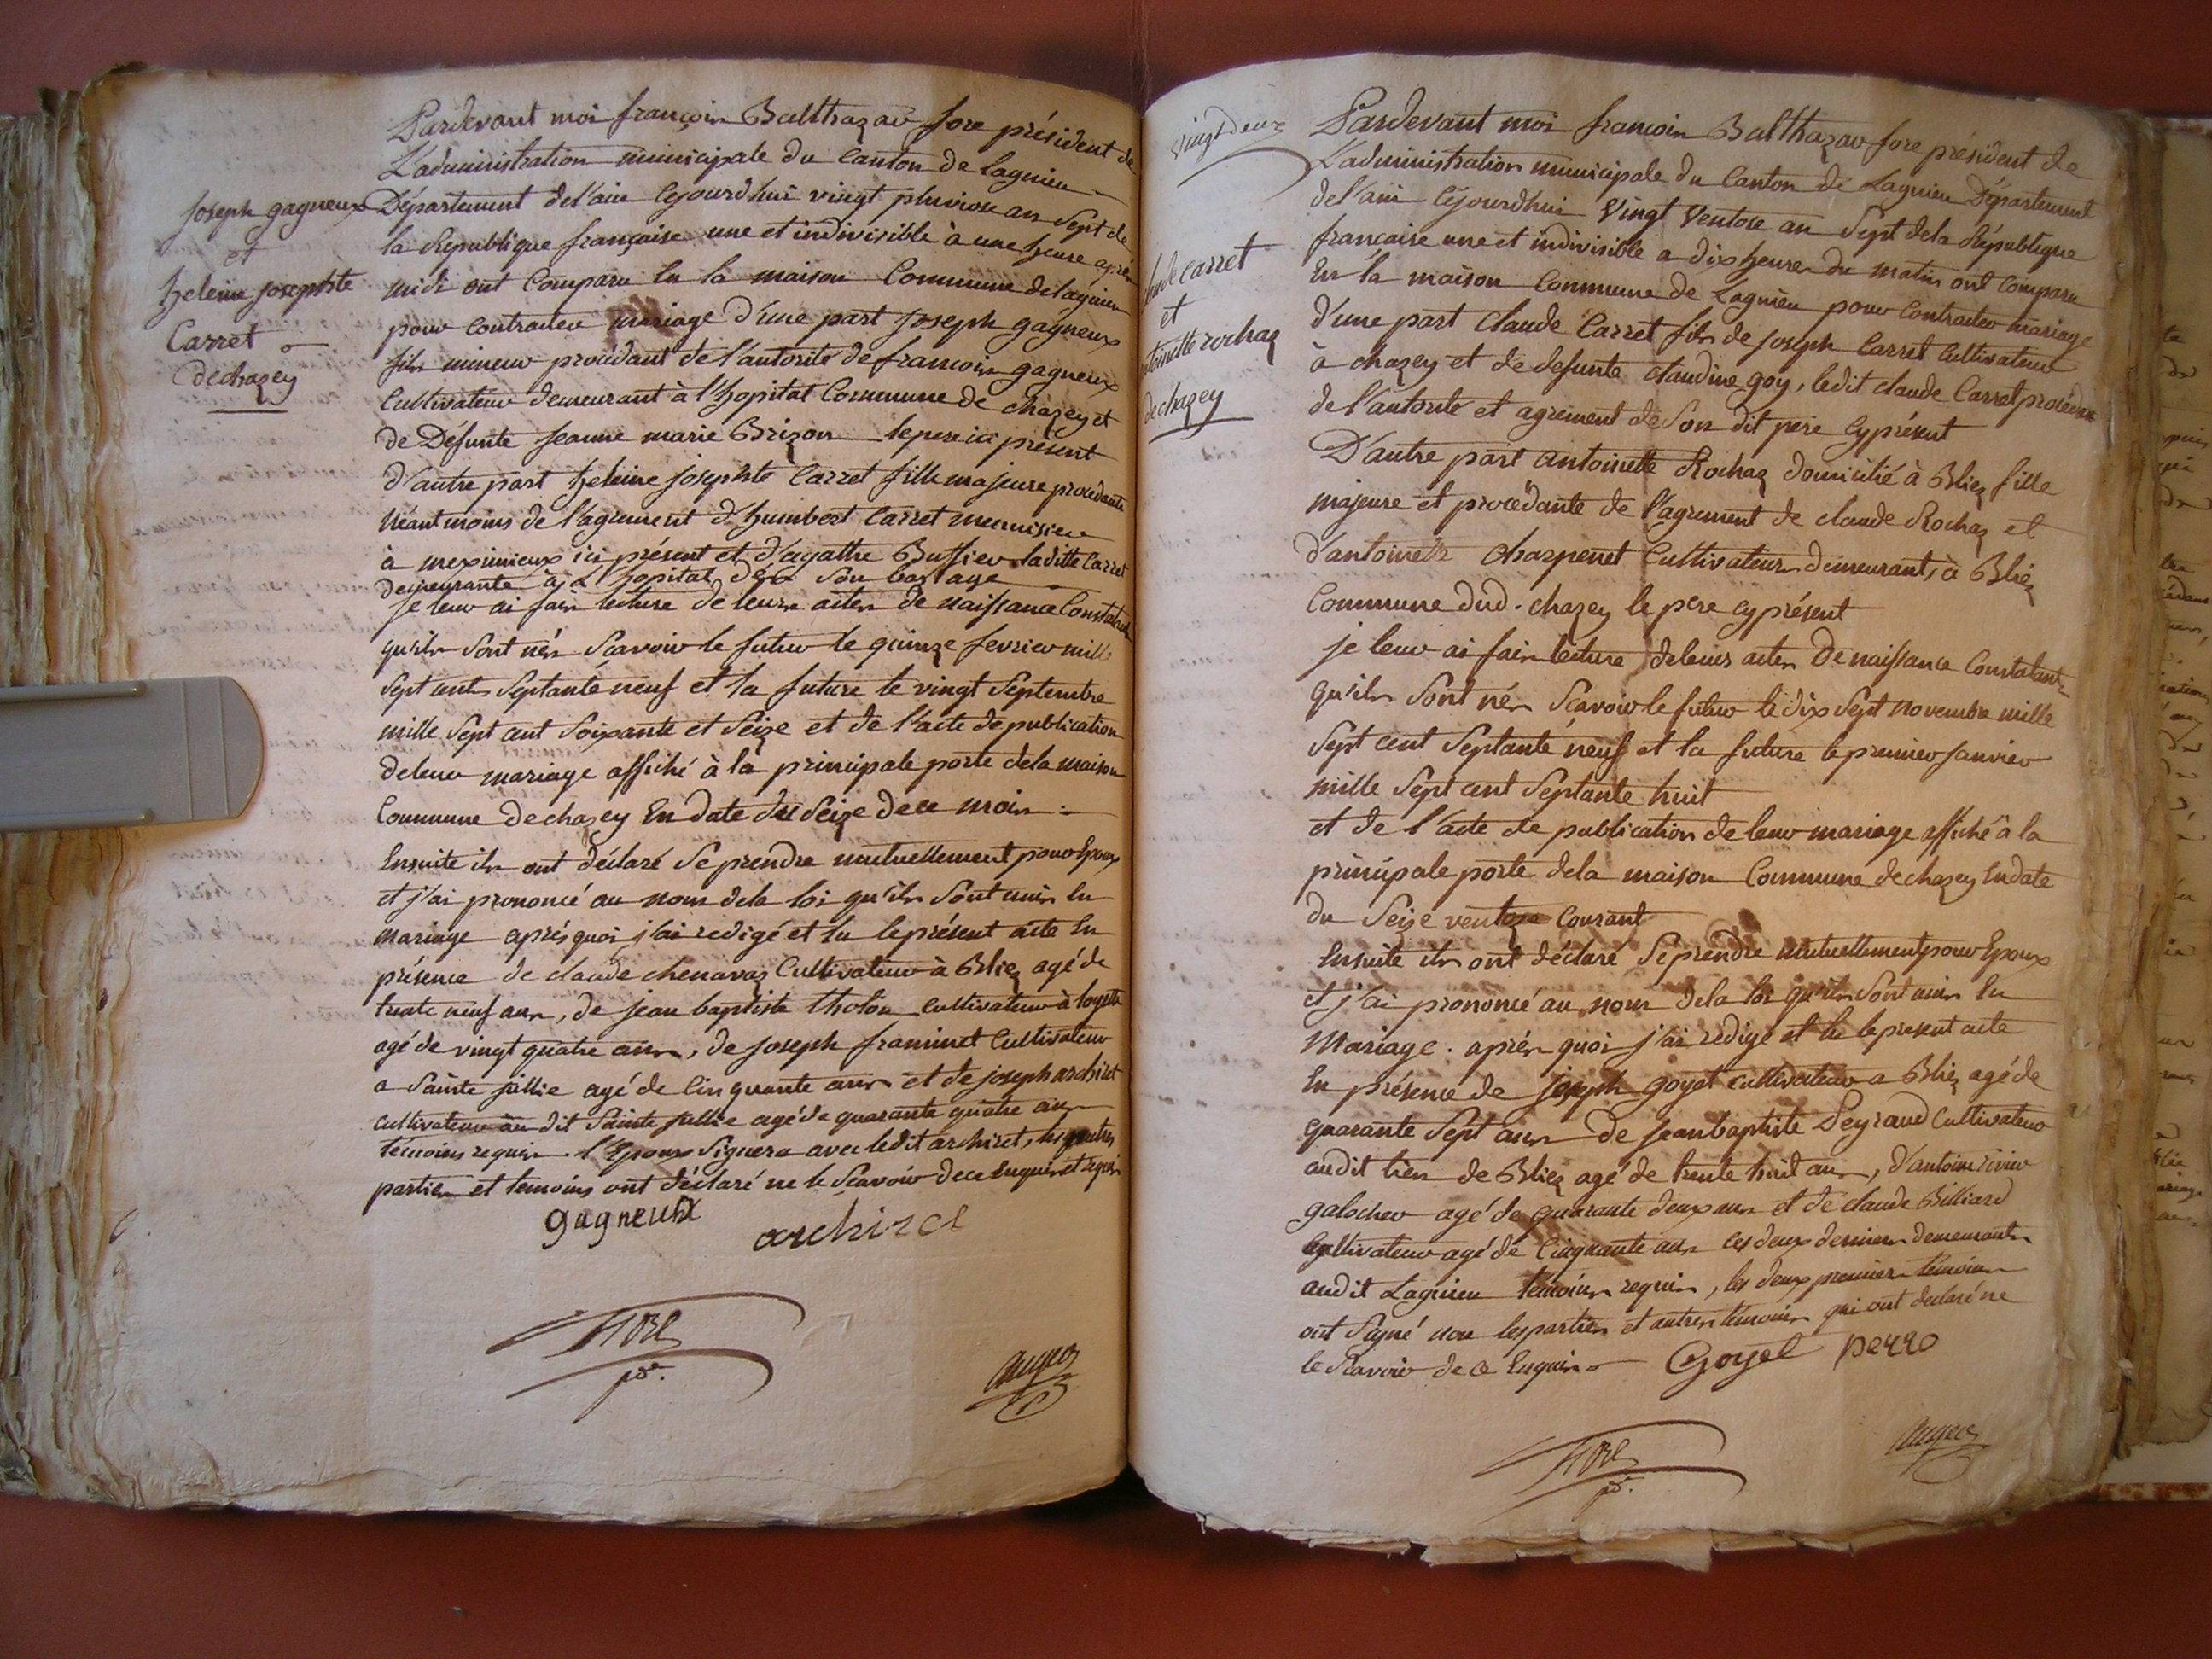 Joseph gagneux
et
heleine josephte
Carret
de chazey
Pardevant moi françois Balthazar fore président de
L'administration municipale du Canton de lagnieu
Département de l'ain cejourd'hui vingt pluviose an Sept de
la République française une et indivisible à une heure après
midi ont Comparu En la maison Commune de lagnieu
pour Contracter mariage d'une part Joseph gagneux
fils mineur procédant de l'autorité de françois gagneux
Cultivateur demeurant à l'hopital Commune de chazey et
de Défunte Jeanne marie Brizon le pere ici présent
d'autre part heleine josephte Carret fille majeure procedante
néantmoins de l'agrement d'humbert Carret menuisier
à meximieux ici présent et d'agathe Buffier laditte Carret
demeurante à l'hopital dès son bas age
je leur ai fait lecture de leurs actes de naissance Constatant
qu'ils Sont nés Scavoir le futur le quinze fevrier mille
Sept cents Septante neuf et la future le vingt Septembre
mille Sept cent Soixante et Seize et de l'acte de publication
de leur mariage affiché à la principale porte de la maison
Commune de chazey En date du Seize de ce mois
Ensuite ils ont déclaré Se prendre mutuellement pour Epoux
et j'ai prononcé au nom de la loi qu'ils Sont unis En
mariage après quoi j'ai redigé et lu le présent acte En
présence de claude chenavaz Cultivateur à Bliez agé de
trente neuf ans, de jean baptiste tholon cultivateur à loyette
agé de vingt quatre ans, de joseph framinet Cultivateur
a Sainte jullie agé de Cinquante ans et de joseph archiret
cultivateur au dit Sainte jullie agé de quarante quatre ans
témoins requis. l'Epoux Signera avec ledit archiret, les autres
parties et temoins ont déclaré ne le Scavoir de ce Enquis et requis
gagneux archiret
fore
pdt.
auger
vingt deux
Claude carret
et
antoinette rochaz
de chazey
Pardevant moi francois Balthazar fore président de
L'administration municipale du Canton de Lagnieu Département
de l'ain cejourdhui Vingt Ventose an Sept de la République
francaise une et indivisible a dix heures du matin ont Comparu
En la maison Commune de Lagnieu pour Contracter mariage
d'une part claude Carret fils de joseph Carret Cultivateur
à chazey et de defunte claudine goy, ledit claude Carret procédant
de l'autorité et agrement de Son dit père cy présent
D'autre part antoinette Rochaz domicilié à Bliez fille
majeure et procedante de l'agrement de claude Rochaz et
d'antoinette charpenet Cultivateurs demeurants à Bliez
Commune dud. chazey le pere cy présent
je leur ai fait lecture de leurs actes de naissance Constatants
qu'ils Sont nés Scavoir le futur le dix Sept novembre mille
Sept cent Septante neuf et la future le premier janvier
mille Sept cent Septante huit
et de l'acte de publication de leur mariage affiché à la
principale porte de la maison Commune de chazey En date
du Seize ventose Courant
Ensuite ils ont déclaré Se prendre mutuellement pour Epoux
et j'ai prononcé au nom de la loi qu'ils Sont unis En
Mariage. après quoi j'ai redigé et lu le present acte
En présence de joseph goyet cultivateur a Bliez agé de
quarante Sept ans de jean baptiste Peyraud Cultivateur
audit lieu de Bliez agé de trente huit ans, d'antoine
galocher agé de quarante deux ans et de claude Billiard
Cultivateur agé de Cinquante ans les deux derniers demeurants
audit Lagnieu témoins requis, les deux premiers témoins
ont Signé non les parties et autres témoins qui ont declaré ne
le Scavoir de ce Enquis Goyet
fore
pdt.
auger